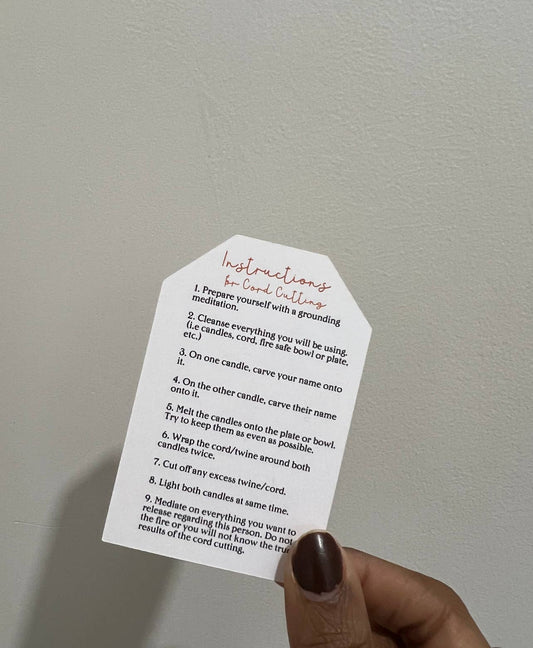 Instructions
for Cord Cutting
1. Prepare yourself with a grounding
meditation.
2. Cleanse everything you will be using.
(i.e candles, cord, fire safe bowl or plate,
etc.)
3. On one candle, carve your name onto
it.
4. On the other candle, carve their name
onto it.
5. Melt the candles onto the plate or bowl.
Try to keep them as even as possible.
6. Wrap the cord/twine around both
candles twice.
7. Cut off any excess twine/cord.
8. Light both candles at same time.
9. Mediate on everything you want to
release regarding this person. Do not
the fire or you will not know the true
results of the cord cutting.